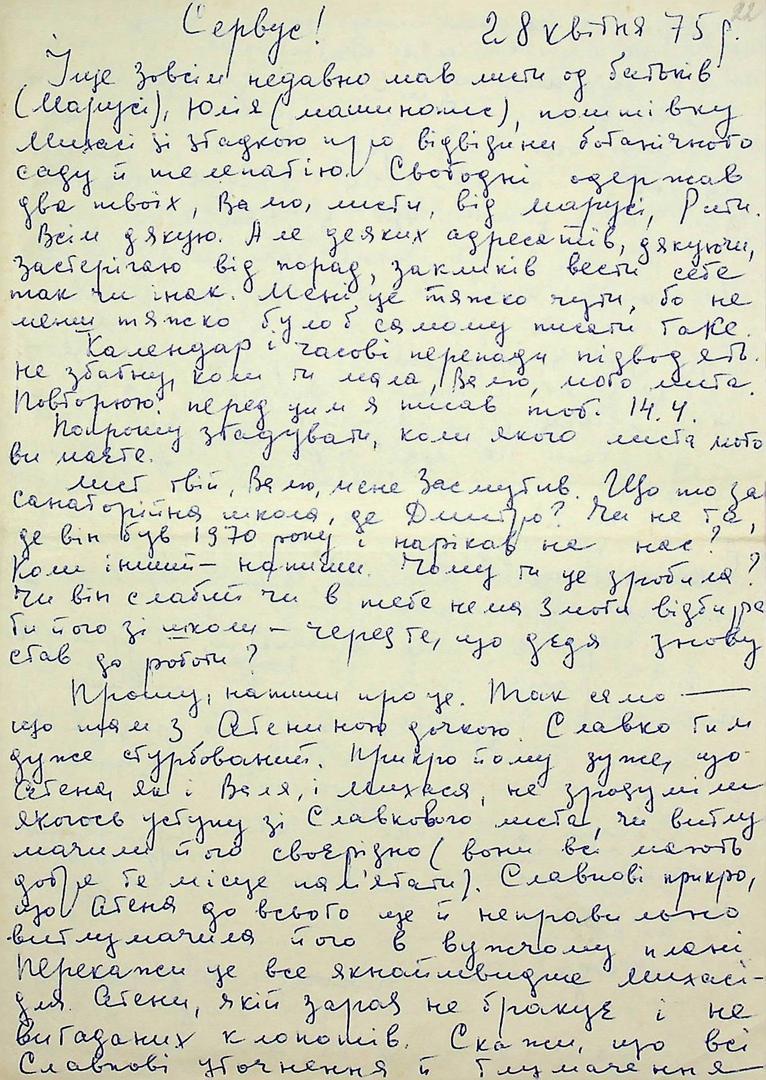 22
Сервус! 28 квітня 75 р.
Іще зовсім недавно мав листи од батьків
(Марусі), Юлія (машинопис), поштівку
Михасі зі згадкою про відвідини ботанічного
саду й телепатію. Сьогодні одержав
два твоїх, Валю, листи, від Марусі, Рити.
Всім дякую. Але деяких адресатів, дякуючи,
застерігаю від порад, закликів вести себе
так чи інак. Мені це тяжко чути, бо не
менш тяжко було б самому писати таке.
Календар і часові перепади підводять.
не збагну, коли ти мала, Валю, мого листа.
Повторюю: перед цим я писав 14.4.
Попрошу згадувати, коли якого листа мого
ви маєте.
Лист твій, Валю, мене засмутив. Що то за
санаторійна школа, де Дмитро? Чи не та,
де він був 1970 року і нарікав на нас?
Коли інший – напиши. Чому ти це зробила?
Чи він слабий чи в тебе нема змоги відбира
ти його зі школи – через те, що дедя знову
став до роботи?
Прошу, напиши про це. Так само –
що там з Атениною дочкою. Славко тим
дуже стурбований. Прикро йому дуже, що
Атена, як і Валя, і Михася, не зрозуміли
якогось уступу зі Славкового листа, чи витлу
мачили його своєрідно (вони всі мають
добре те місце пам'ятати). Славкові прикро,
що Атена до всього ще й неправильно
витлумачила його в вужчому плані
Перекажи це все якнайшвидше Михасі –
для Атени, якій зараз не бракує і не
вигаданих клопотів. Скажи, що всі
Славкові уточнення й тлумачення –